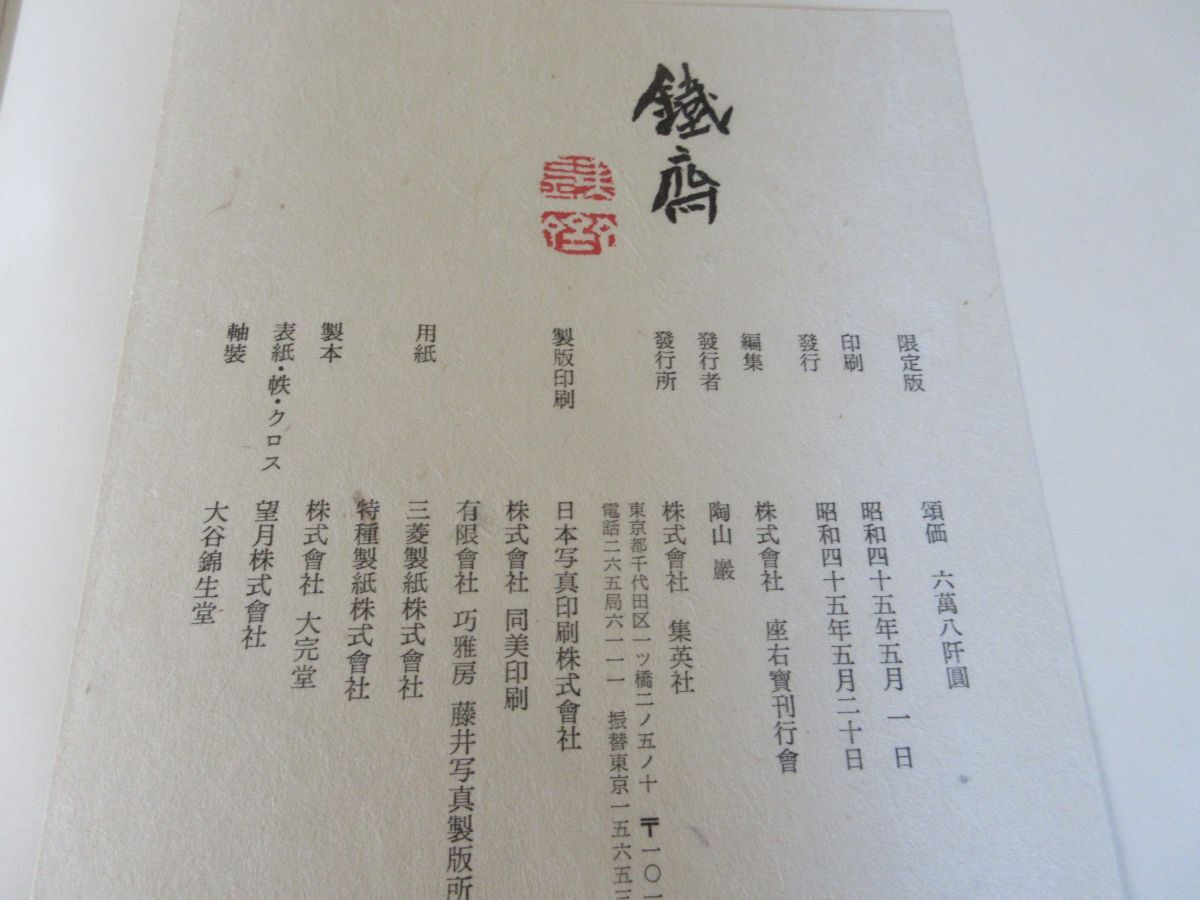 鐵齋
限定版 頒価 六萬八阡圓
印刷 昭和四十五年五月 一 日
發行 昭和四十五年五月二十日
編集 株式會社 座右寶刊行會
發行者 陶山 巖
發行所 株式會社 集英社
東京都千代田区一ツ橋二ノ五ノ十 〒一〇一
電話二六五局六一一一 振替東京一五六五三
製版印刷 日本写真印刷株式會社
株式會社 同美印刷
有限會社 巧雅房 藤井写真製版所
用紙 三菱製紙株式會社
特種製紙株式會社
製本 株式會社 大完堂
表紙・帙・クロス 望月株式會社
軸装 大谷錦生堂